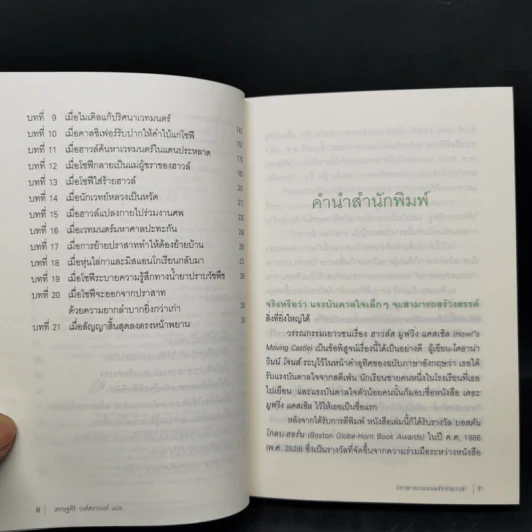 บทที่ 9 เมื่อไมเคิลแก้ปริศนาเวทมนตร์
บทที่ 10 เมื่อคาลซิเฟอร์รับปากให้คำใบ้แก่โซฟี
บทที่ 11 เมื่อฮาวล์ค้นหาเวทมนตร์ในแดนประหลาด
บทที่ 12 เมื่อโซฟีกลายเป็นแม่ผู้ชราของฮาวล์
บทที่ 13 เมื่อโซฟีใส่ร้ายฮาวล์
บทที่ 14 เมื่อนักเวทย์หลวงเป็นหวัด
บทที่ 15 เมื่อฮาวล์แปลงกายไปร่วมงานศพ
บทที่ 16 เมื่อเวทมนตร์มหาศาลปะทะกัน
บทที่ 17 เมื่อการย้ายปราสาททำให้ต้องย้ายบ้าน
บทที่ 18 เมื่อหุ่นไล่กาและมิสแอนโกเรียนกลับมา
บทที่ 19 เมื่อโซฟีระบายความรู้สึกทางน้ำยาปราบวัชพืช
บทที่ 20 เมื่อโซฟีจะออกจากปราสาท
ด้วยความยากลำบากยิ่งกว่าเก่า
บทที่ 21 เมื่อสัญญาสิ้นสุดลงตรงหน้าพยาน
6
คำนำสำนักพิมพ์
จริงหรือว่า แรงบันดาลใจเล็กๆ จะสามารถสร้างสรรค์
สิ่งที่ยิ่งใหญ่ได้
วรรณกรรมเยาวชนเรื่อง ฮาวล์ส มูฟวิ่ง แคสเซิล (Howl's
Moving Castle) เป็นข้อพิสูจน์เรื่องนี้ได้เป็นอย่างดี ผู้เขียน-ไดอาน่า
วินน์ โจนส์ ระบุไว้ในหน้าคำอุทิศของฉบับภาษาอังกฤษว่า เธอได้
รับแรงบันดาลใจจากสตีเฟน นักเรียนชายคนหนึ่งในโรงเรียนที่เธอ
ไปเยือน และแรงบันดาลใจตัวน้อยคนนั้นก็มอบชื่อหนังสือ เดอะ
มูฟวิ่ง แคสเซิล ไว้ให้เธอเป็นชื่อแรก
หลังจากได้รับการตีพิมพ์ หนังสือเล่มนี้ก็ได้รับรางวัล บอสตัน
โกลบ-ฮอร์น (Boston Globe-Horn Book Awards) ในปี ค.ศ. 1986
(พ.ศ. 2529) ซึ่งเป็นรางวัลที่จัดขึ้นจากความร่วมมือระหว่างหนังสือ
7